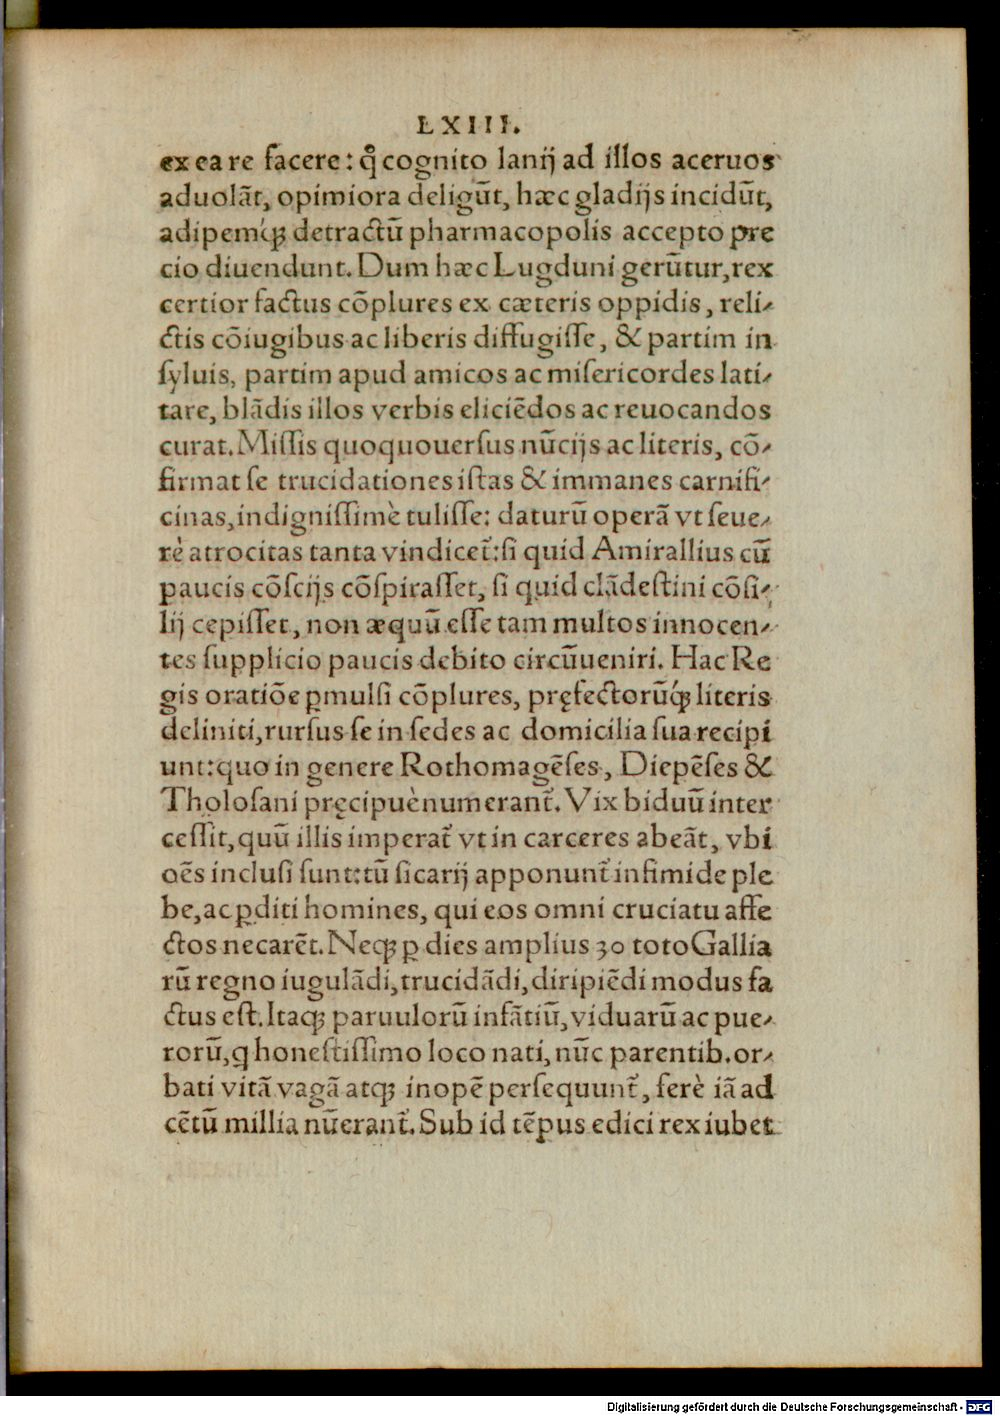 LXIII.
ex ea re facere: qͦ cognito lanij ad illos aceruos
aduolāt, opimiora deligūt, hæc gladijs incidūt,
adipemq́ꝫ detractū pharmacopolis accepto pre
cio diuendunt. Dum hæc Lugduni gerūtur, rex
certior factus cōplures ex cæteris oppidis, reli-
ctis cōiugibus ac liberis diffugiſſe, & partim in
ſyluis, partim apud amicos ac miſericordes lati-
tare, blādis illos verbis eliciēdos ac reuocandos
curat. Miſſis quoquouerſus nūcijs ac literis, cō-
firmat ſe trucidationes iſtas & immanes carnifi-
cinas, indigniſſimè tuliſſe: daturū operā vt ſeue-
rè atrocitas tanta vindicet᷑: ſi quid Amirallius cū
paucis cōſcijs cōſpiraſſet, ſi quid clādeſtini cōſi-
lij cepiſſet, non æquū eſſe tam multos innocen-
tes ſupplicio paucis debito circūueniri. Hac Re
gis oratiōe ꝑmulſi cōplures, pręfectorūq́ꝫ literis
deliniti, rurſus ſe in ſedes ac domicilia ſua recipi
unt: quo in genere Rothomagēſes, Diepēſes &
Tholoſani pręcipuè numerant᷑. Vix biduū inter
ceſſit, quū illis imperat᷑ vt in carceres abeāt, vbi
oēs incluſi ſunt: tū ſicarij apponunt᷑ infimi de ple
be, ac ꝑditi homines, qui eos omni cruciatu affe
ctos necarēt. Neqꝫ ꝑ dies amplius 30 toto Gallia
rū regno iugulādi, trucidādi, diripiēdi modus fa
ctus eſt. Itaqꝫ paruulorū infātiū, viduarū ac pue-
rorū, q honeſtiſſimo loco nati, nūc parentib. or-
bati vitā vagā atqꝫ inopē perſequunt᷑, ferè iā ad
cētū millia nūerant᷑. Sub id tēpus edici rex iubet
Digitalisierung gefördert durch die Deutsche Forschungsgemeinschaft - DFG